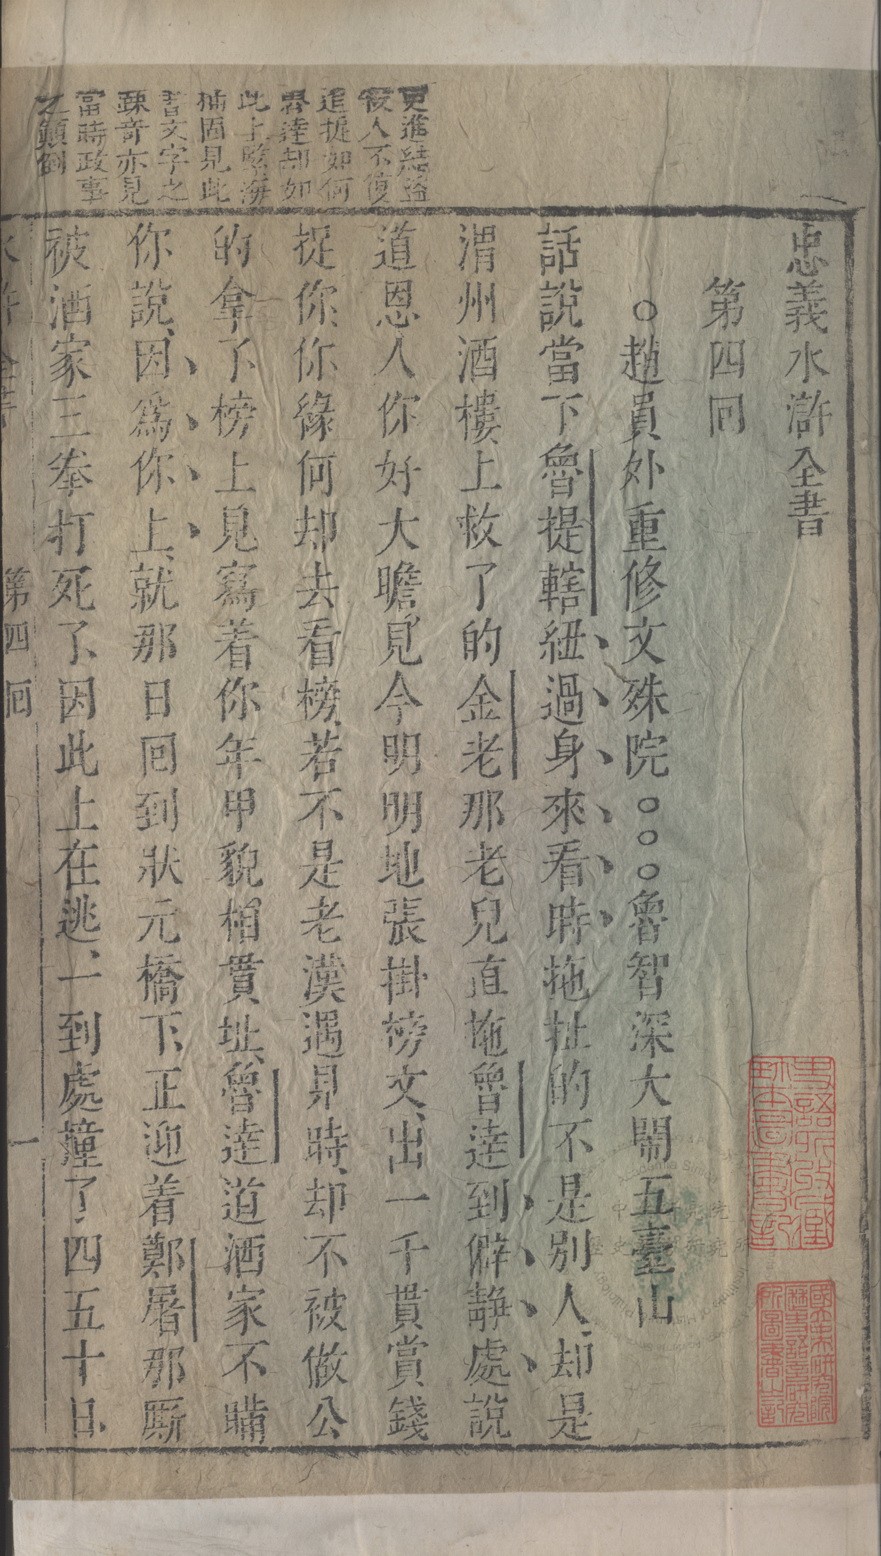 忠義水滸全書
第四回
○趙員外重修文殊院○○○魯智深大鬧五臺山
話說當下魯提轄紐過身來看時拖扯的不是別人、却是
渭州酒樓上救了的金老那老兒直拖魯達到僻静處說
道恩人你好大膽見今明明地張掛榜文、出一千貫賞錢
捉你、你緣何却去看榜、若不是老漢遇見時、却不被做公
的拿了、榜上見寫着你年甲貌相貫址、魯達道洒家不瞞
你說、因爲你上、就那日回到狀元橋下、正迎着鄭屠那厮
被洒家三拳打死了、因此上在逃、一到處撞了四五十日
第四回
一
更進結盜
役人不復
追捉如何
魯達却如
此上緊海
捕固見此
書文字之
踈奇亦見
當時政事
之顛倒